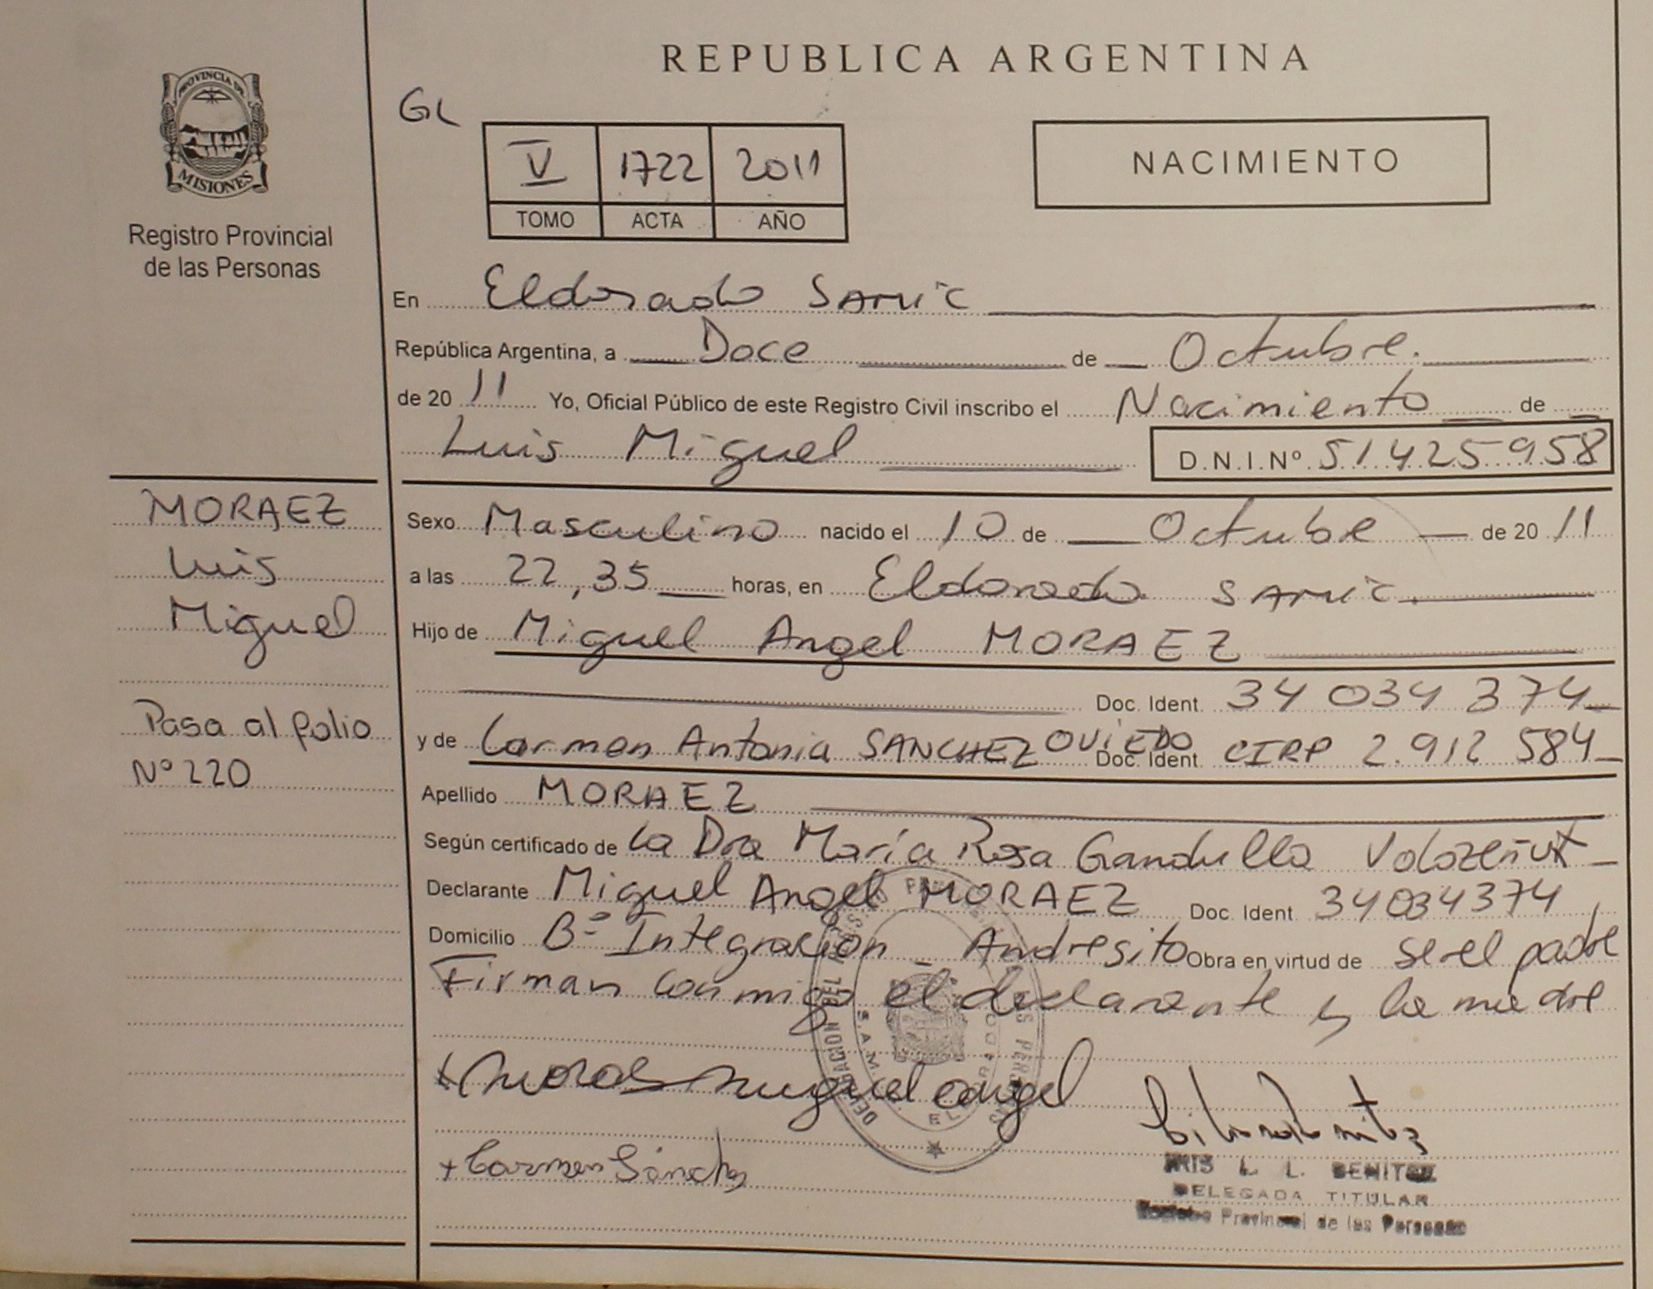 REPUBLICA ARGENTINA
PROVINCIA DE
MISIONES
Registro Provincial
de las Personas
GL
V 1722 2011
TOMO ACTA AÑO
NACIMIENTO
En Eldorado SAMIC
República Argentina, a Doce de Octubre.
de 20 11 Yo, Oficial Público de este Registro Civil inscribo el Nacimiento de
Luis Miguel D.N.I.Nº 51.425.958
MORAEZ
Luis
Miguel
Pasa al folio
Nº 220
Sexo Masculino nacido el 10 de Octubre de 20 11
a las 22,35 horas, en Eldorado SAMIC.
Hijo de Miguel Angel MORAEZ
Doc. Ident. 34 034 374
y de Carmen Antonia SANCHEZ OVIEDO Doc. Ident. CIRP 2.912 584
Apellido MORAEZ
Según certificado de la Dra María Rosa Gandulla
Declarante Miguel Angel MORAEZ Doc. Ident. 34034374
Domicilio Bº Integración - Andresito Obra en virtud de ser el padre
Firman conmigo el declarante y la madre
+ miguel angel
+ Carmen Sánchez
DELEGACION DEL REGISTRO PROVINCIAL DE LAS PERSONAS
S.A.M.I.C. ELDORADO
IRIS L. L. BENITEZ
DELEGADA TITULAR
Registro Provincial de las Personas